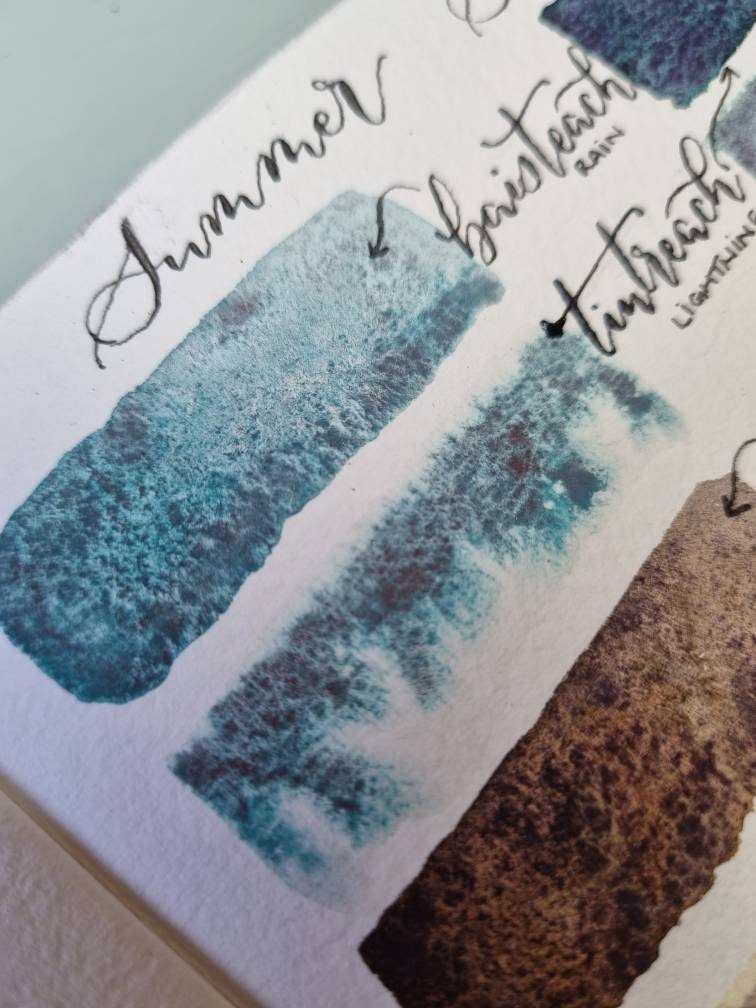 Summer
baisteach
RAIN
tintreach
LIGHTNING